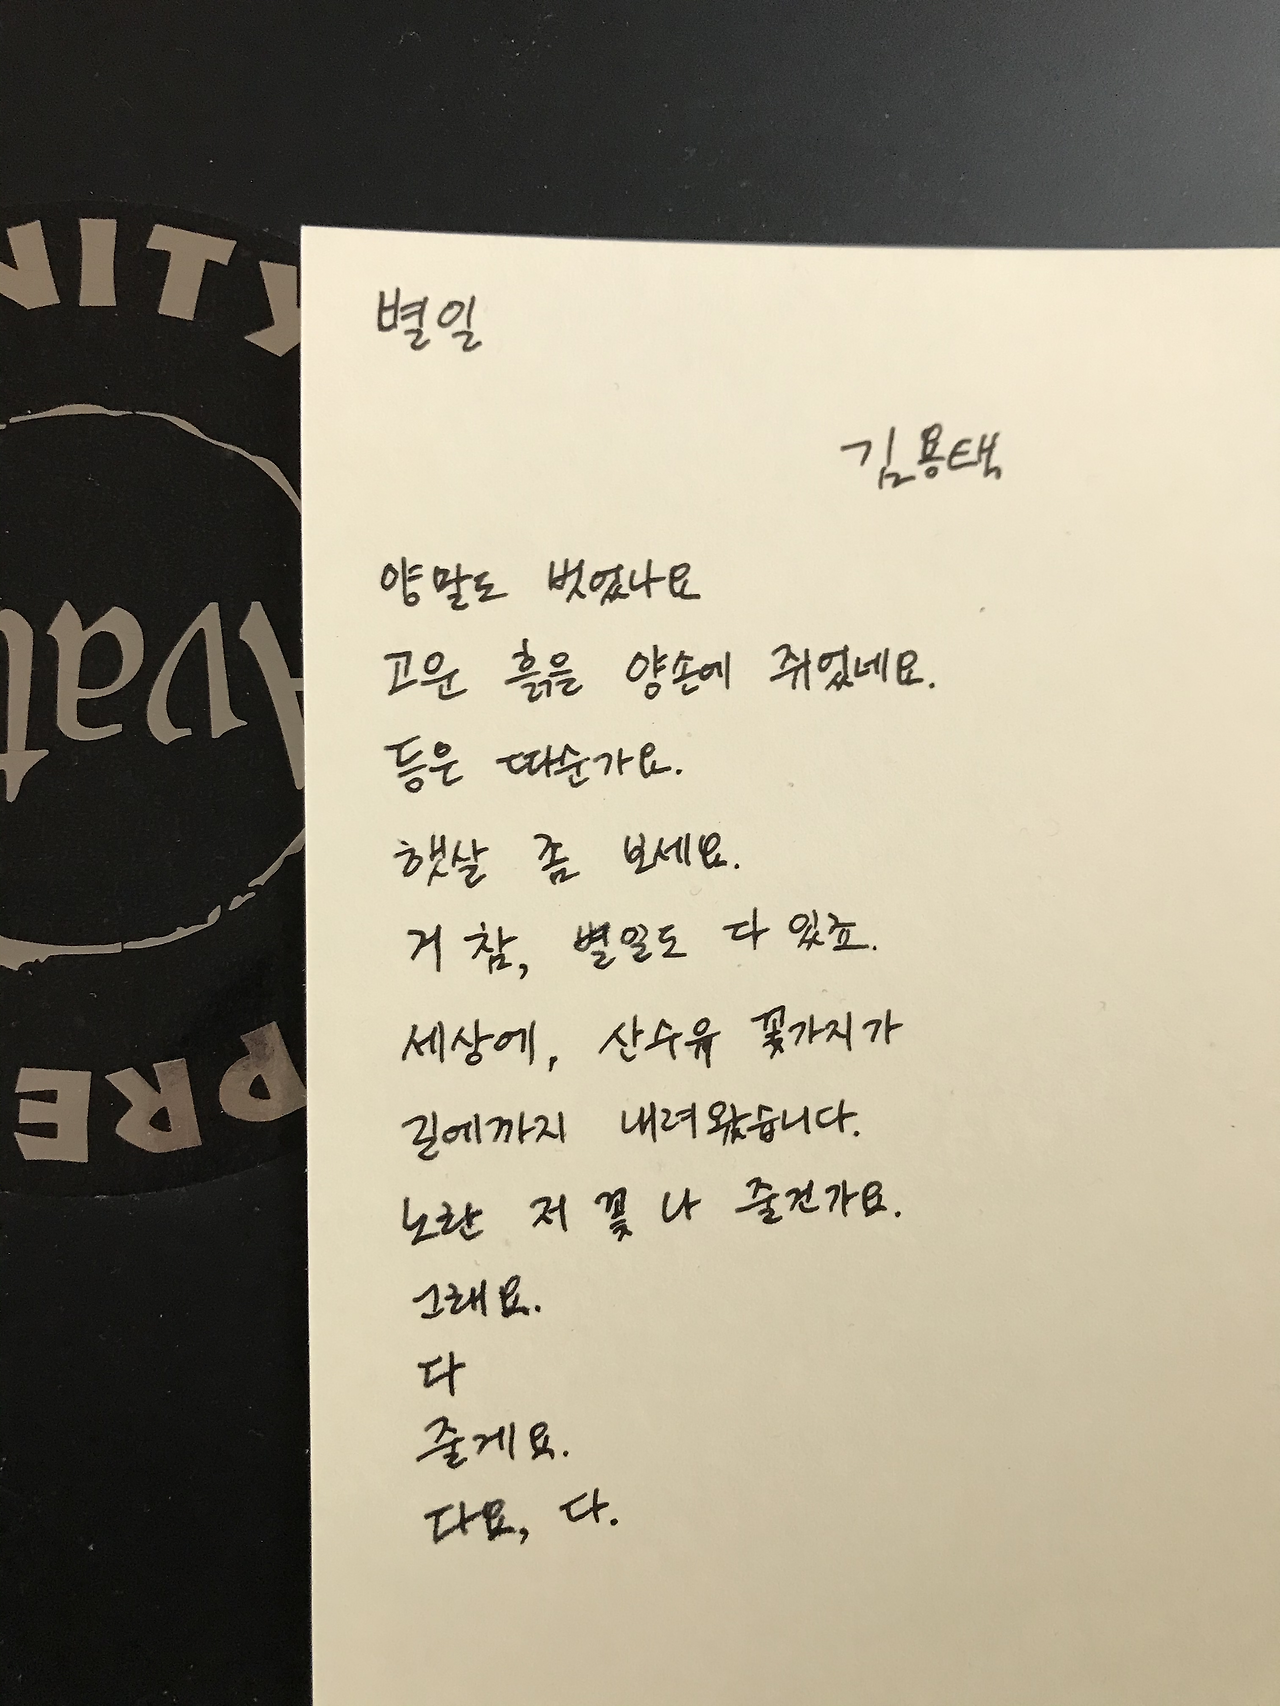 NITY
별일
김용택
Avat
양말도 벗었나요
고운 흙을 양손에 쥐었네요.
등은 따순가요.
햇살 좀 보세요.
거 참, 별일도 다 있죠.
세상에, 산수유 꽃가지가
길에까지 내려왔습니다.
노란 저 꽃 나 줄건가요.
그래요.
다
줄게요.
다요, 다.
PRE